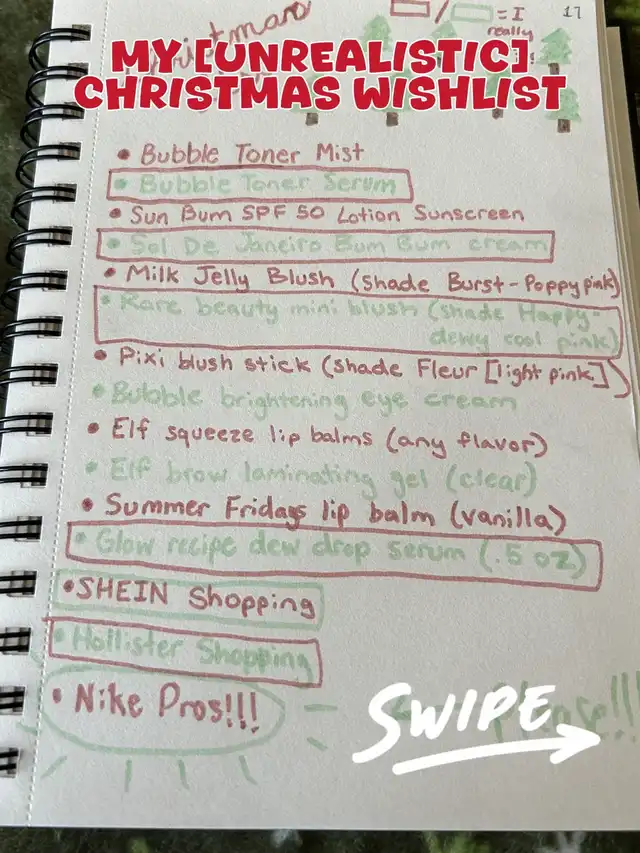 Christmas
= I
really
17
MY [UNREALISTIC]
CHRISTMAS WISHLIST
• Bubble Toner Mist
• Bubble Toner Serum
• Sun Bum SPF 50 Lotion Sunscreen
• Sol De Janeiro Bum Bum cream
• Milk Jelly Blush (shade Burst - Poppy pink)
• Rare beauty mini blush (shade Happy-
dewy cool pink)
• Pixi blush stick (shade Fleur [light pink])
• Bubble brightening eye cream
• Elf squeeze lip balms (any flavor)
• Elf brow laminating gel (clear)
• Summer Fridays lip balm (vanilla)
• Glow recipe dew drop serum (.5 oz)
• SHEIN Shopping
• Hollister Shopping
• Nike Pros!!!
Please!!!
SWIPE